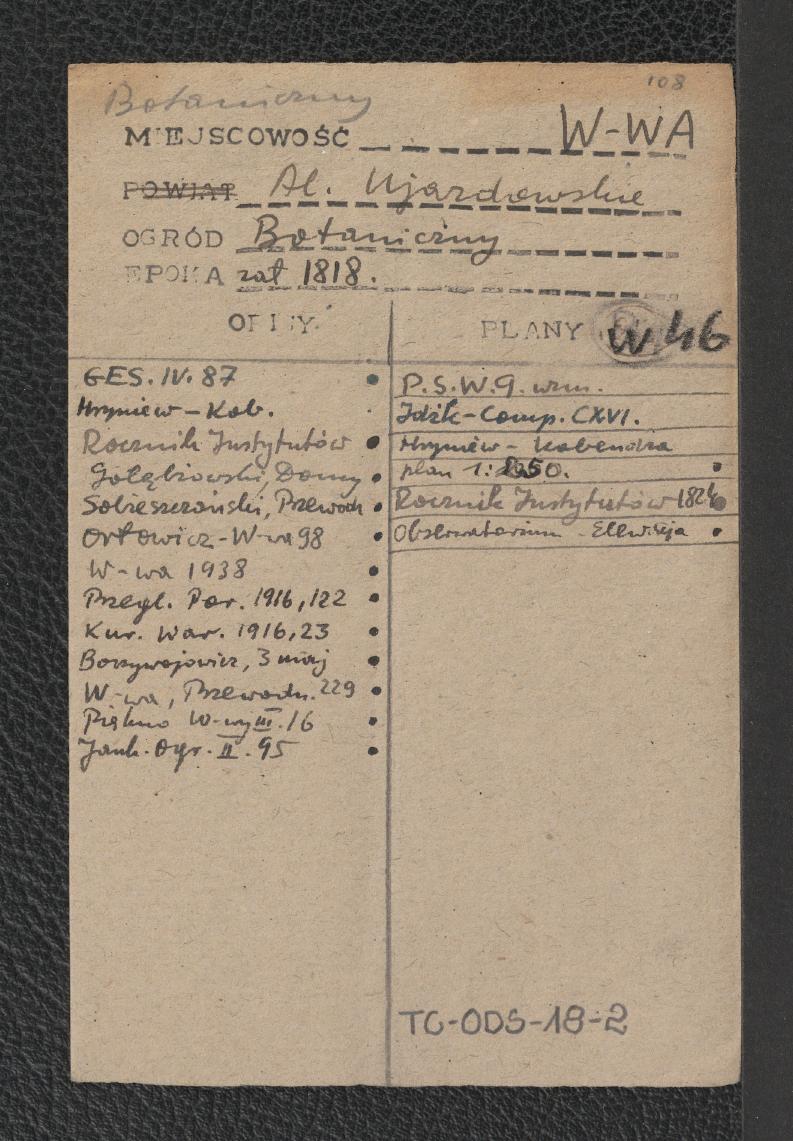 108
Botaniczny
MIEJSCOWOŚĆ W-WA
POWIAT Al. Ujazdowskie
OGRÓD Botaniczny
EPOKA zał 1818.
OPISY PLANY W46
GES. IV. 87
Hryniew - Kob.
Rocznik Instytutów
Gołębiowski, Domy
Sobieszczański, Przewodn
Orłowicz - W-wa 98
W-wa 1938
Przegl. Por. 1916, 122
Kur. War. 1916, 23
Borzywojowicz, 3 maj
W-wa, Przewodn. 229
Piękno W-wy III. 16
Jank. Ogr. II. 95
P.S.W.9. wzm.
Jdźk-Comp. CXVI.
Hryniew - Kobendza
plan 1:
Rocznik Instytutów 1824
Obserwatorium - Elewacja
TC-ODS-18-2